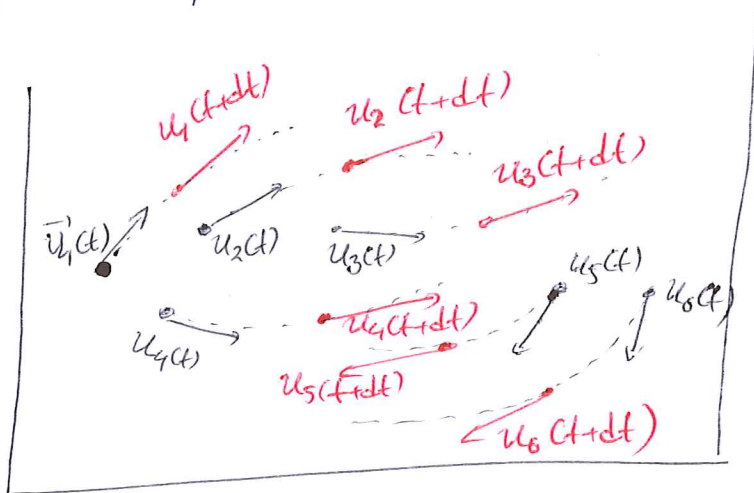 u₁(t+dt)
u₂(t+dt)
u₃(t+dt)
u⃗₁(t)
u₂(t)
u₃(t)
u₅(t)
u₆(t)
u₄(t)
u₄(t+dt)
u₅(t+dt)
u₆(t+dt)